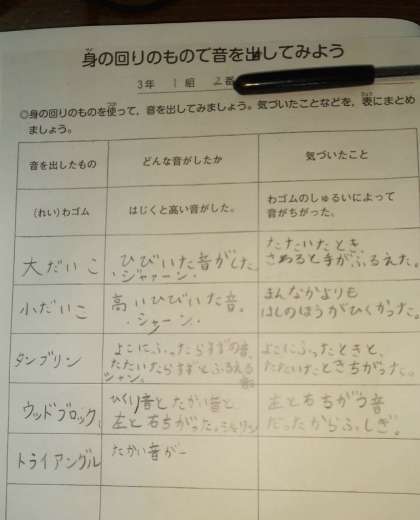 身の回りのもので音を出してみよう
3年 1組 2番
◎身の回りのものを使って，音を出してみましょう。気づいたことなどを，表にまとめ
ましょう。
音を出したもの
どんな音がしたか
気づいたこと
(れい)わゴム
はじくと高い音がした。
わゴムのしゅるいによって
音がちがった。
大だいこ
ひびいた音がした。
・ジャァーン・
たたいたとき、
さわると手がふるえた。
小だいこ
高いひびいた音。
・シャーン・
まんなかよりも
はしのほうがひくかった。
タンブリン
よこにふったらすずの音、
たたいたらすずとふるえる
シャン。
よこにふったときと、
たたいたときちがった。
ウッドブロック、
ひくい音とたかい音と、
左と右ちがった。
左と右ちがう音
だったからふしぎ。
トライアングル
たかい音がー